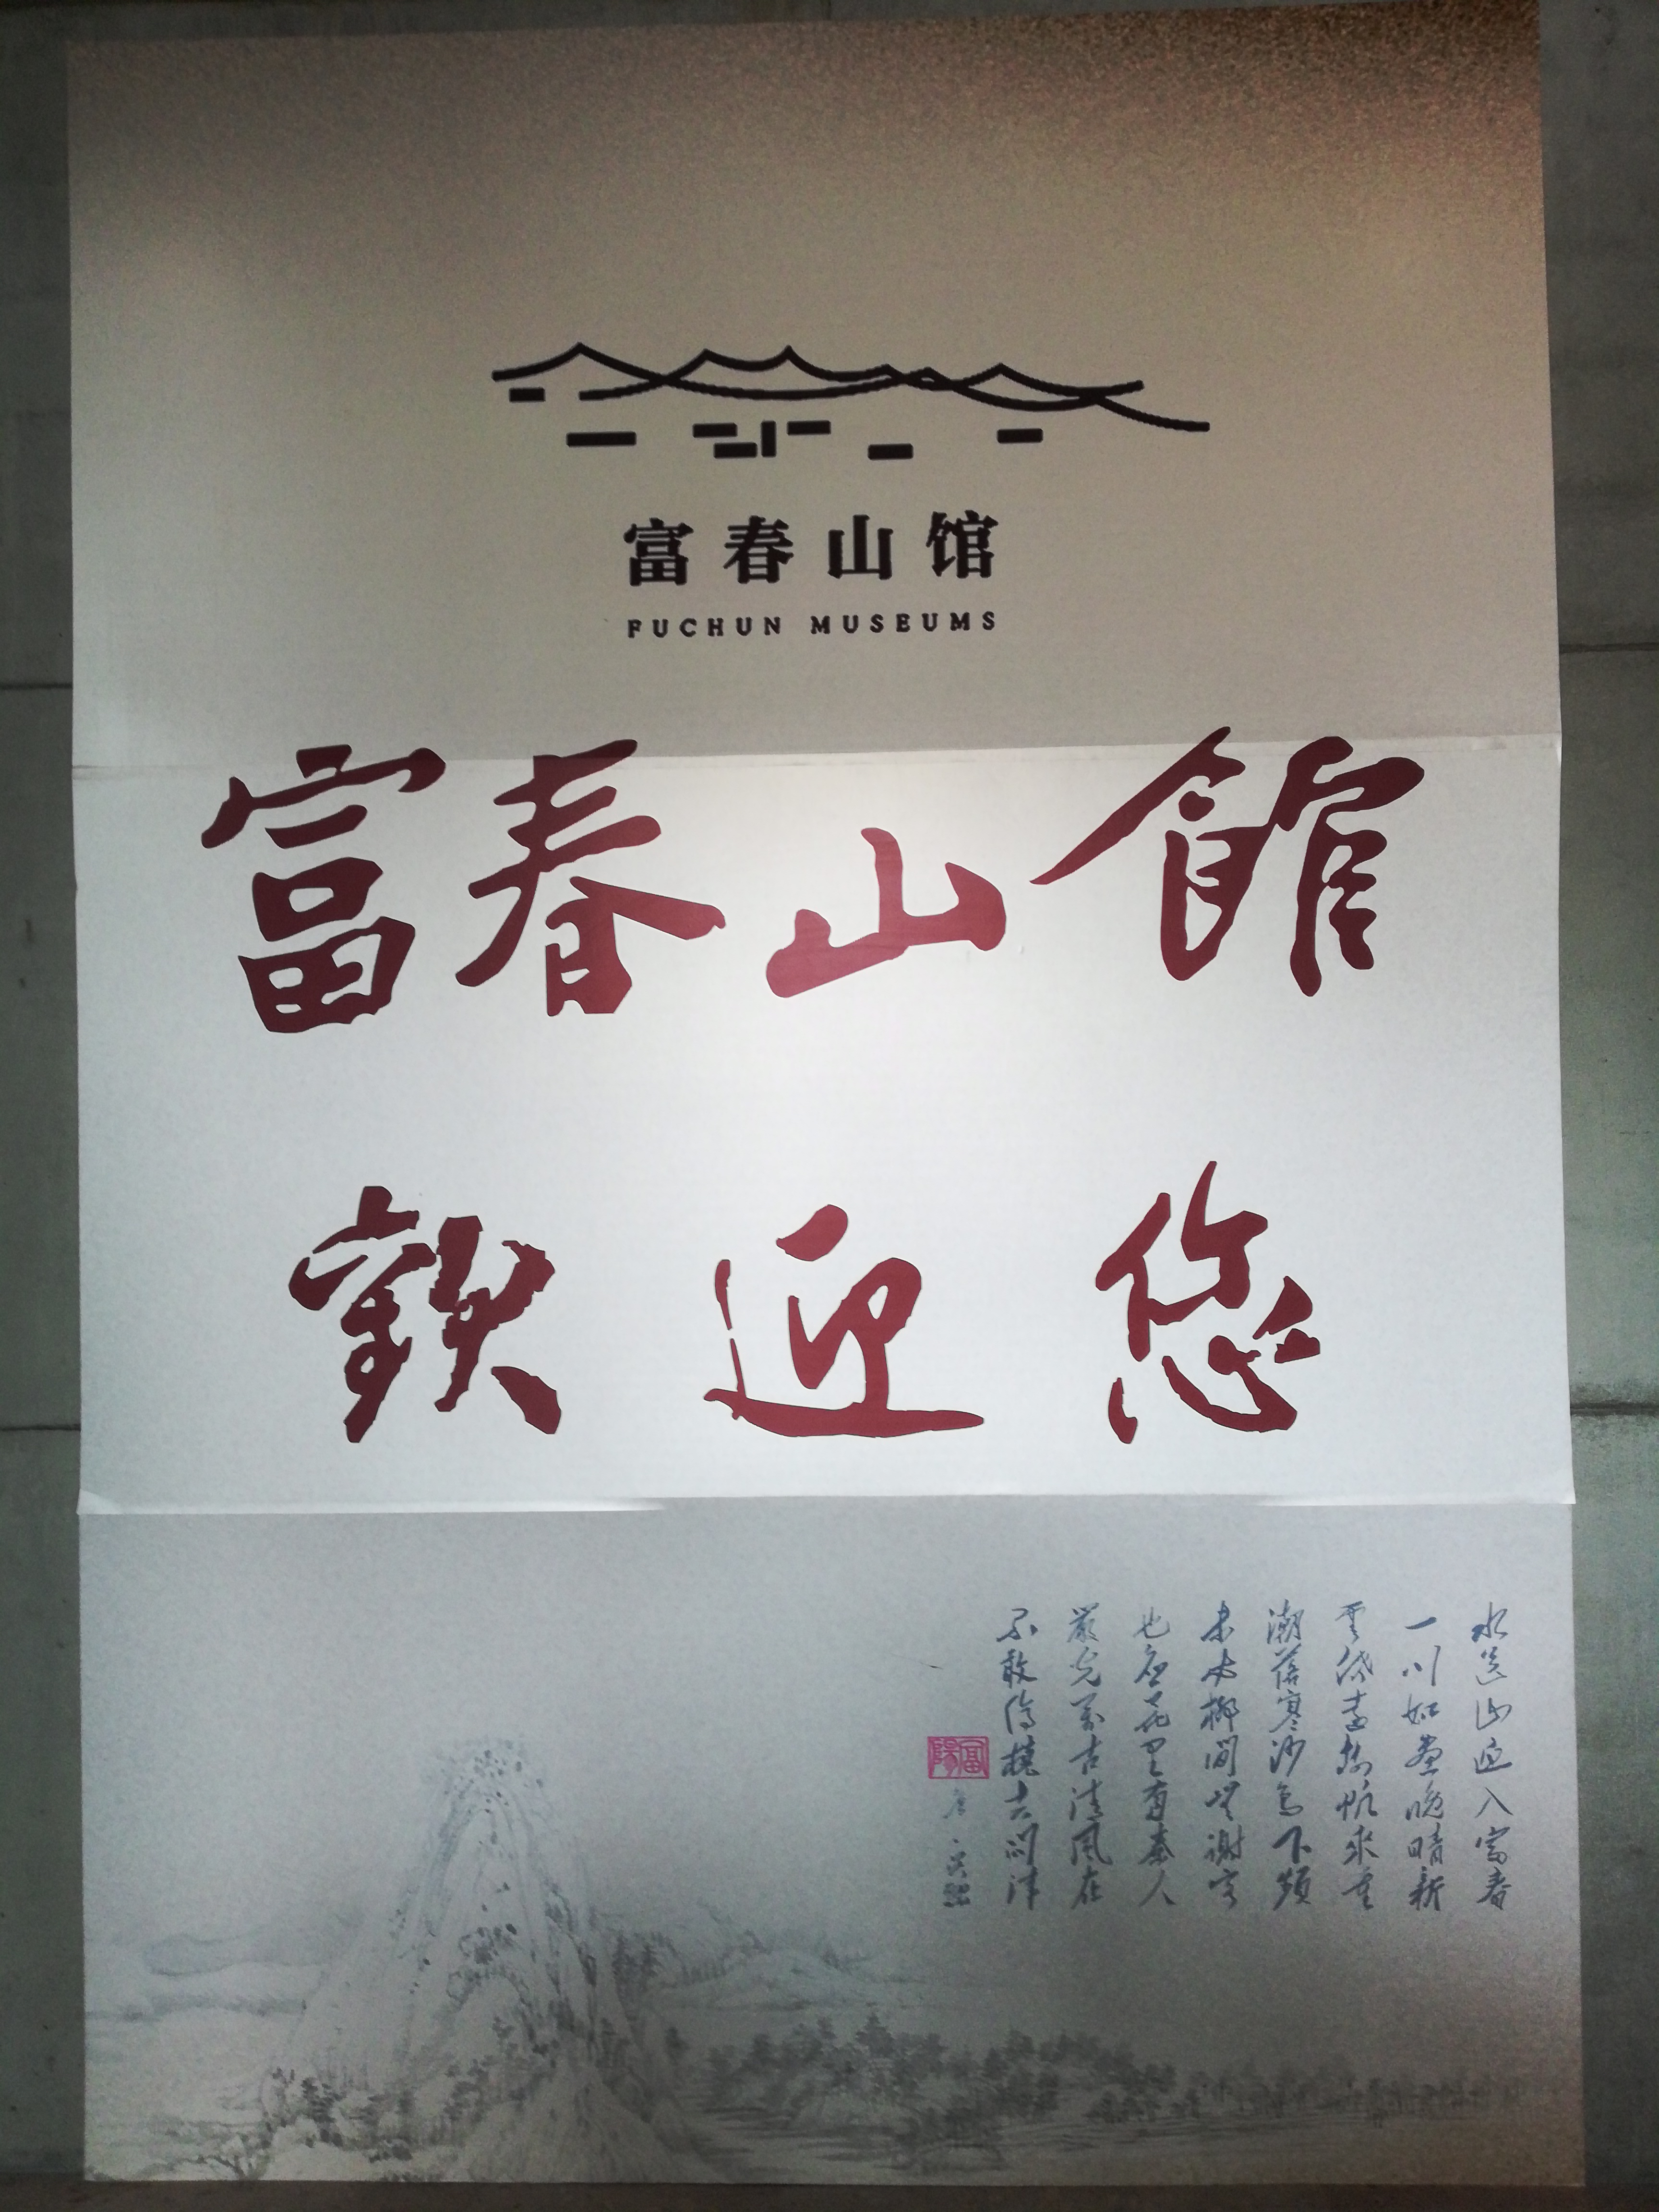 富春山馆
FUCHUN MUSEUMS
富春山館
歡迎您
水送山迎入富春
一川如畫晚晴新
雲低遠渡帆來重
潮落寒沙鳥下頻
未必柳間無謝客
也應花里有秦人
嚴光萬古清風在
不敢停橈去問津
唐 吳融
富陽